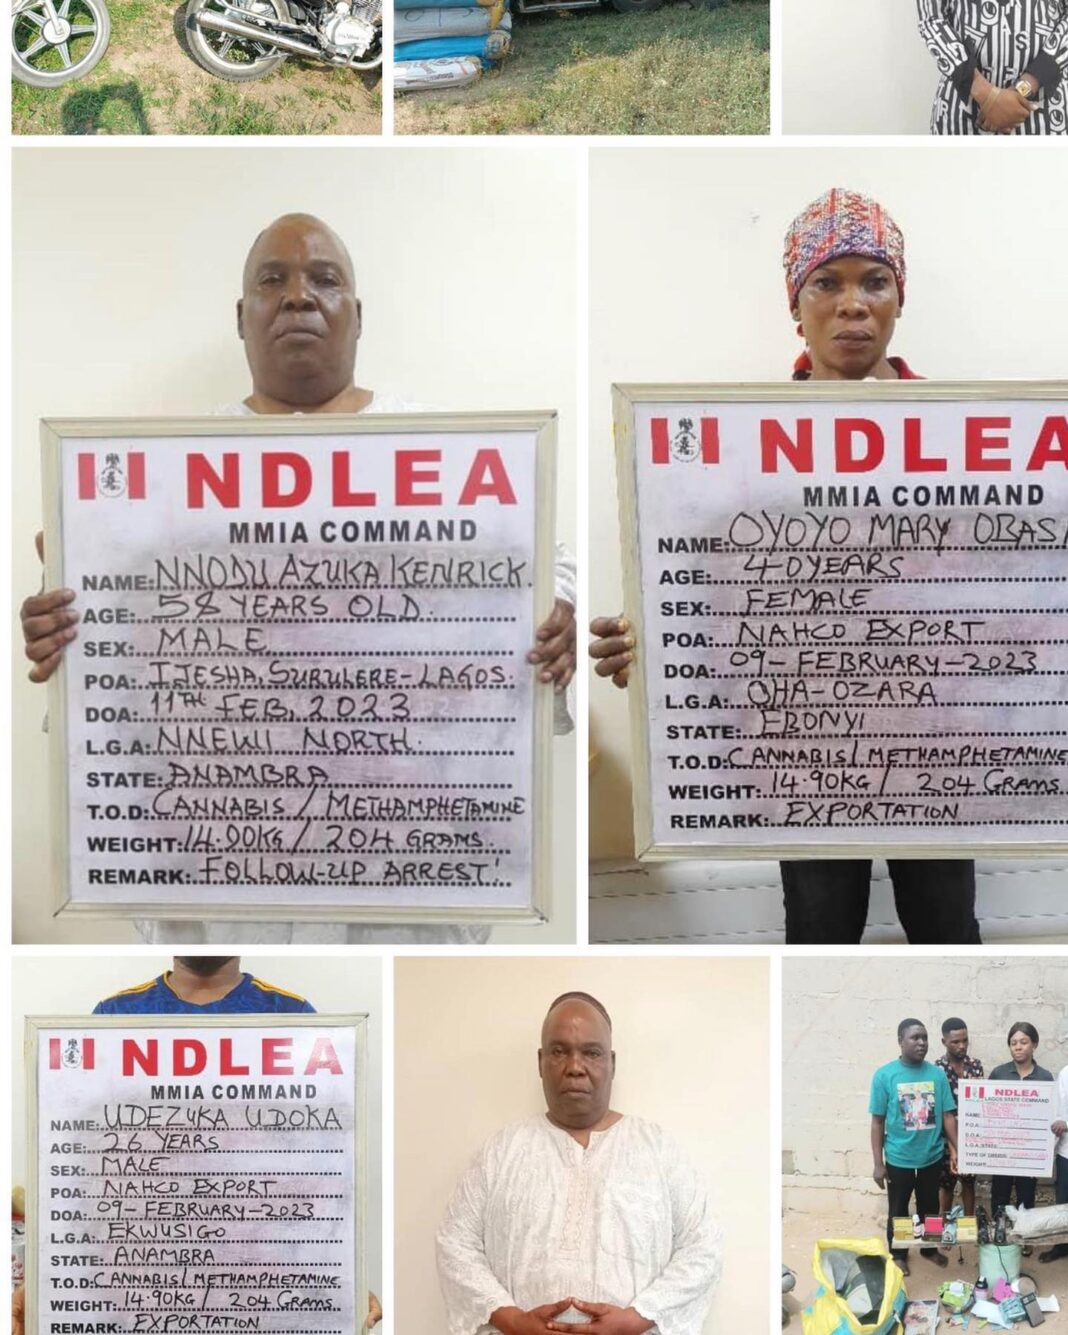 NDLEA
MMIA COMMAND
NAME: NNODU AZUKA KENRICK.
AGE: 58 YEARS OLD.
SEX: MALE
POA: IJESHA, SURULERE-LAGOS.
DOA: 11TH FEB, 2023
L.G.A: NNEWI NORTH
STATE: ANAMBRA
T.O.D: CANNABIS / METHAMPHETAMINE
WEIGHT: 14.90KG / 204 GRAMS.
REMARK: FOLLOW-UP ARREST!
NDLEA
MMIA COMMAND
NAME: OYOYO MARY OBAS
AGE: 40YEARS
SEX: FEMALE
POA: NAHCO EXPORT
DOA: 09-FEBRUARY-2023
L.G.A: OHA-OZARA
STATE: EBONYI
T.O.D: CANNABIS/METHAMPHETAMINE
WEIGHT: 14.90KG / 204 GRAMS
REMARK: EXPORTATION
NDLEA
MMIA COMMAND
NAME: UDEZUKA UDOKA
AGE: 26 YEARS
SEX: MALE
POA: NAHCO EXPORT
DOA: 09-FEBRUARY-2023
L.G.A: EKWUSIGO
STATE: ANAMBRA
T.O.D: CANNABIS/METHAMPHETAMINE
WEIGHT: 14.90KG / 204 GRAMS
REMARK: EXPORTATION
NDLEA
LAGOS STATE COMMAND
NAME:
P.O.A:
D.O.A:
L.G.A/STATE:
TYPE OF DRUGS:
WEIGHT: